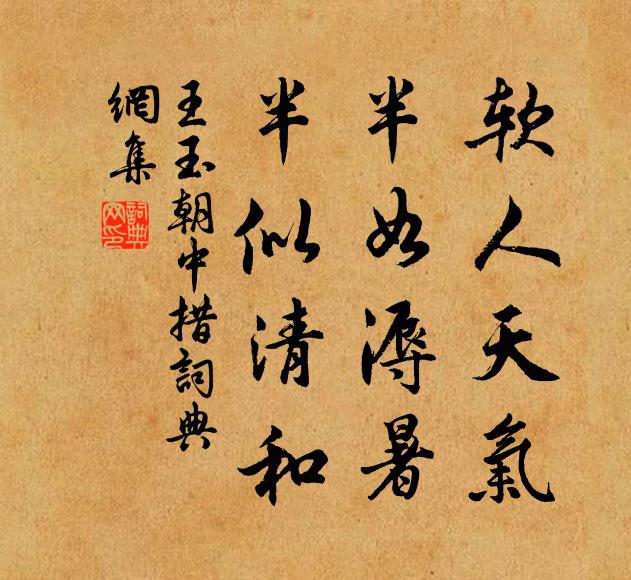 軟人天氣
半如溽暑
半似清和
王玉朝中措詞典
網集
詞典
网印